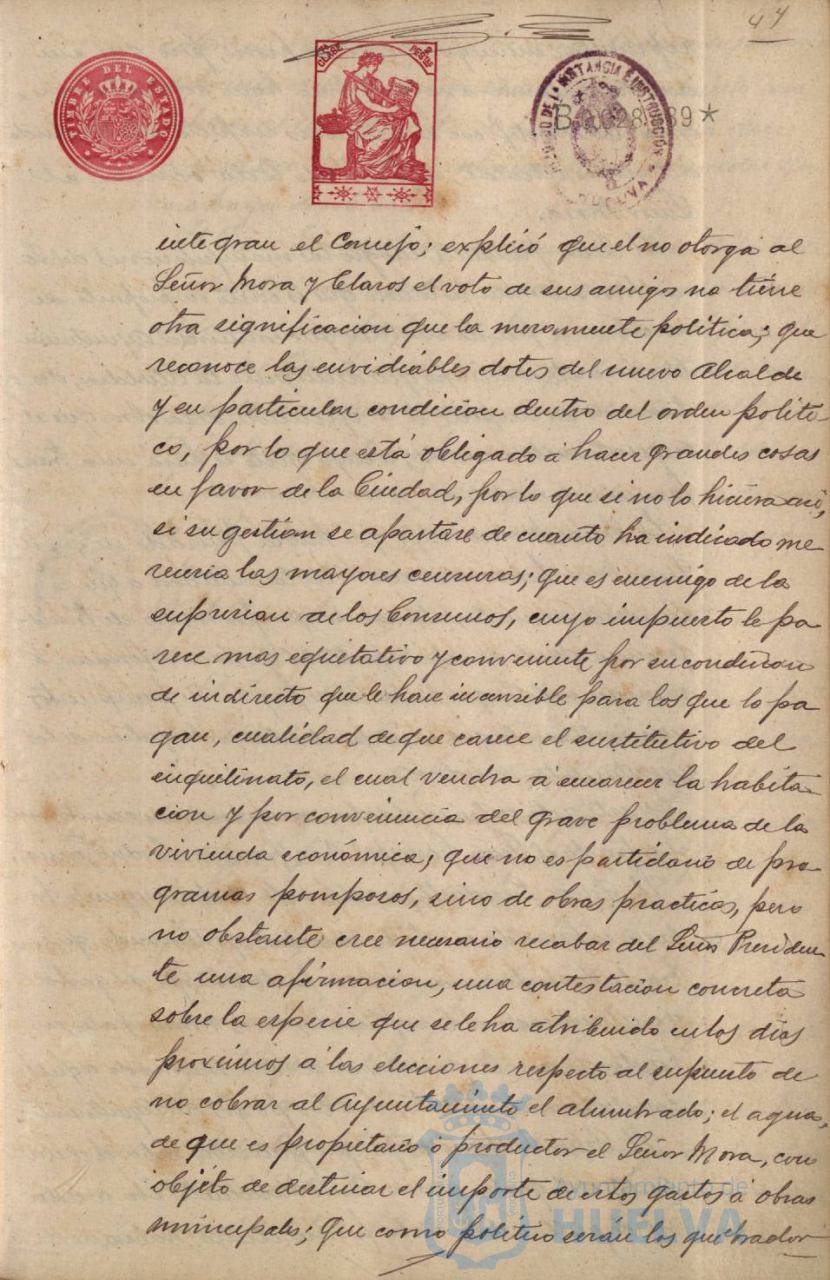 44
TIMBRE DEL ESTADO
CLASE PESETAS
JUZGADO DE 1ª INSTANCIA E INSTRUCCIÓN
HUELVA
integran el Concejo; explicó que el no otorgar al
Señor Mora y Claros el voto de sus amigos no tiene
otra significacion que la meramente politica; que
reconoce las envidiables dotes del nuevo Alcalde
y en particular condicion dentro del orden politi-
co, por lo que está obligado á hacer grandes cosas
en favor de la Ciudad, por lo que si no lo hiciera asi,
si su gestion se apartase de cuanto ha indicado me
receria las mayores censuras; que es enemigo de la
supresion de los Consumos, cuyo impuesto le pa
rece mas equitativo y conveniente por su condicion
de indirecto que le hace insensible para los que lo pa
gan, cualidad de que carece el sustitutivo del
inquilinato, el cual vendra á encarecer la habita-
cion y por convenencia del grave problema de la
vivienda económica; que no es partidario de pro
gramas pomposos, sino de obras practicas, pero
no obstante cree necesario recabar del Señor Presiden-
te una afirmacion, una contestacion concreta
sobre la especie que se le ha atribuido en los dias
proximos á las elecciones respecto al supuesto de
no cobrar al Ayuntamiento el alumbrado; el agua,
de que es propietario ó productor el Señor Mora, con
objeto de destinar el importe de estos gastos á obras
municipales; que como politico serán los quebrador
Ayuntamiento de
HUELVA